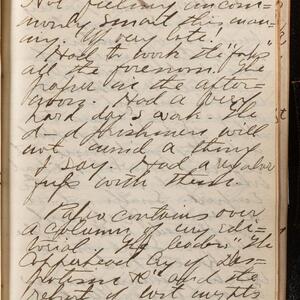 Not feeling uncom-
monly smart this mor-
ning. Up very late!
Had to work the "jobs"
all the forenoon. The
paper in the after-
noon. Had a very
hard day's work. The
d—d printers will
not mind a thing
I say. Had a regular
fuss with them.
Paper contains over
a column of my edi-
torial. My leader "The
Copperhead Cry of Des-
potism &c" and the